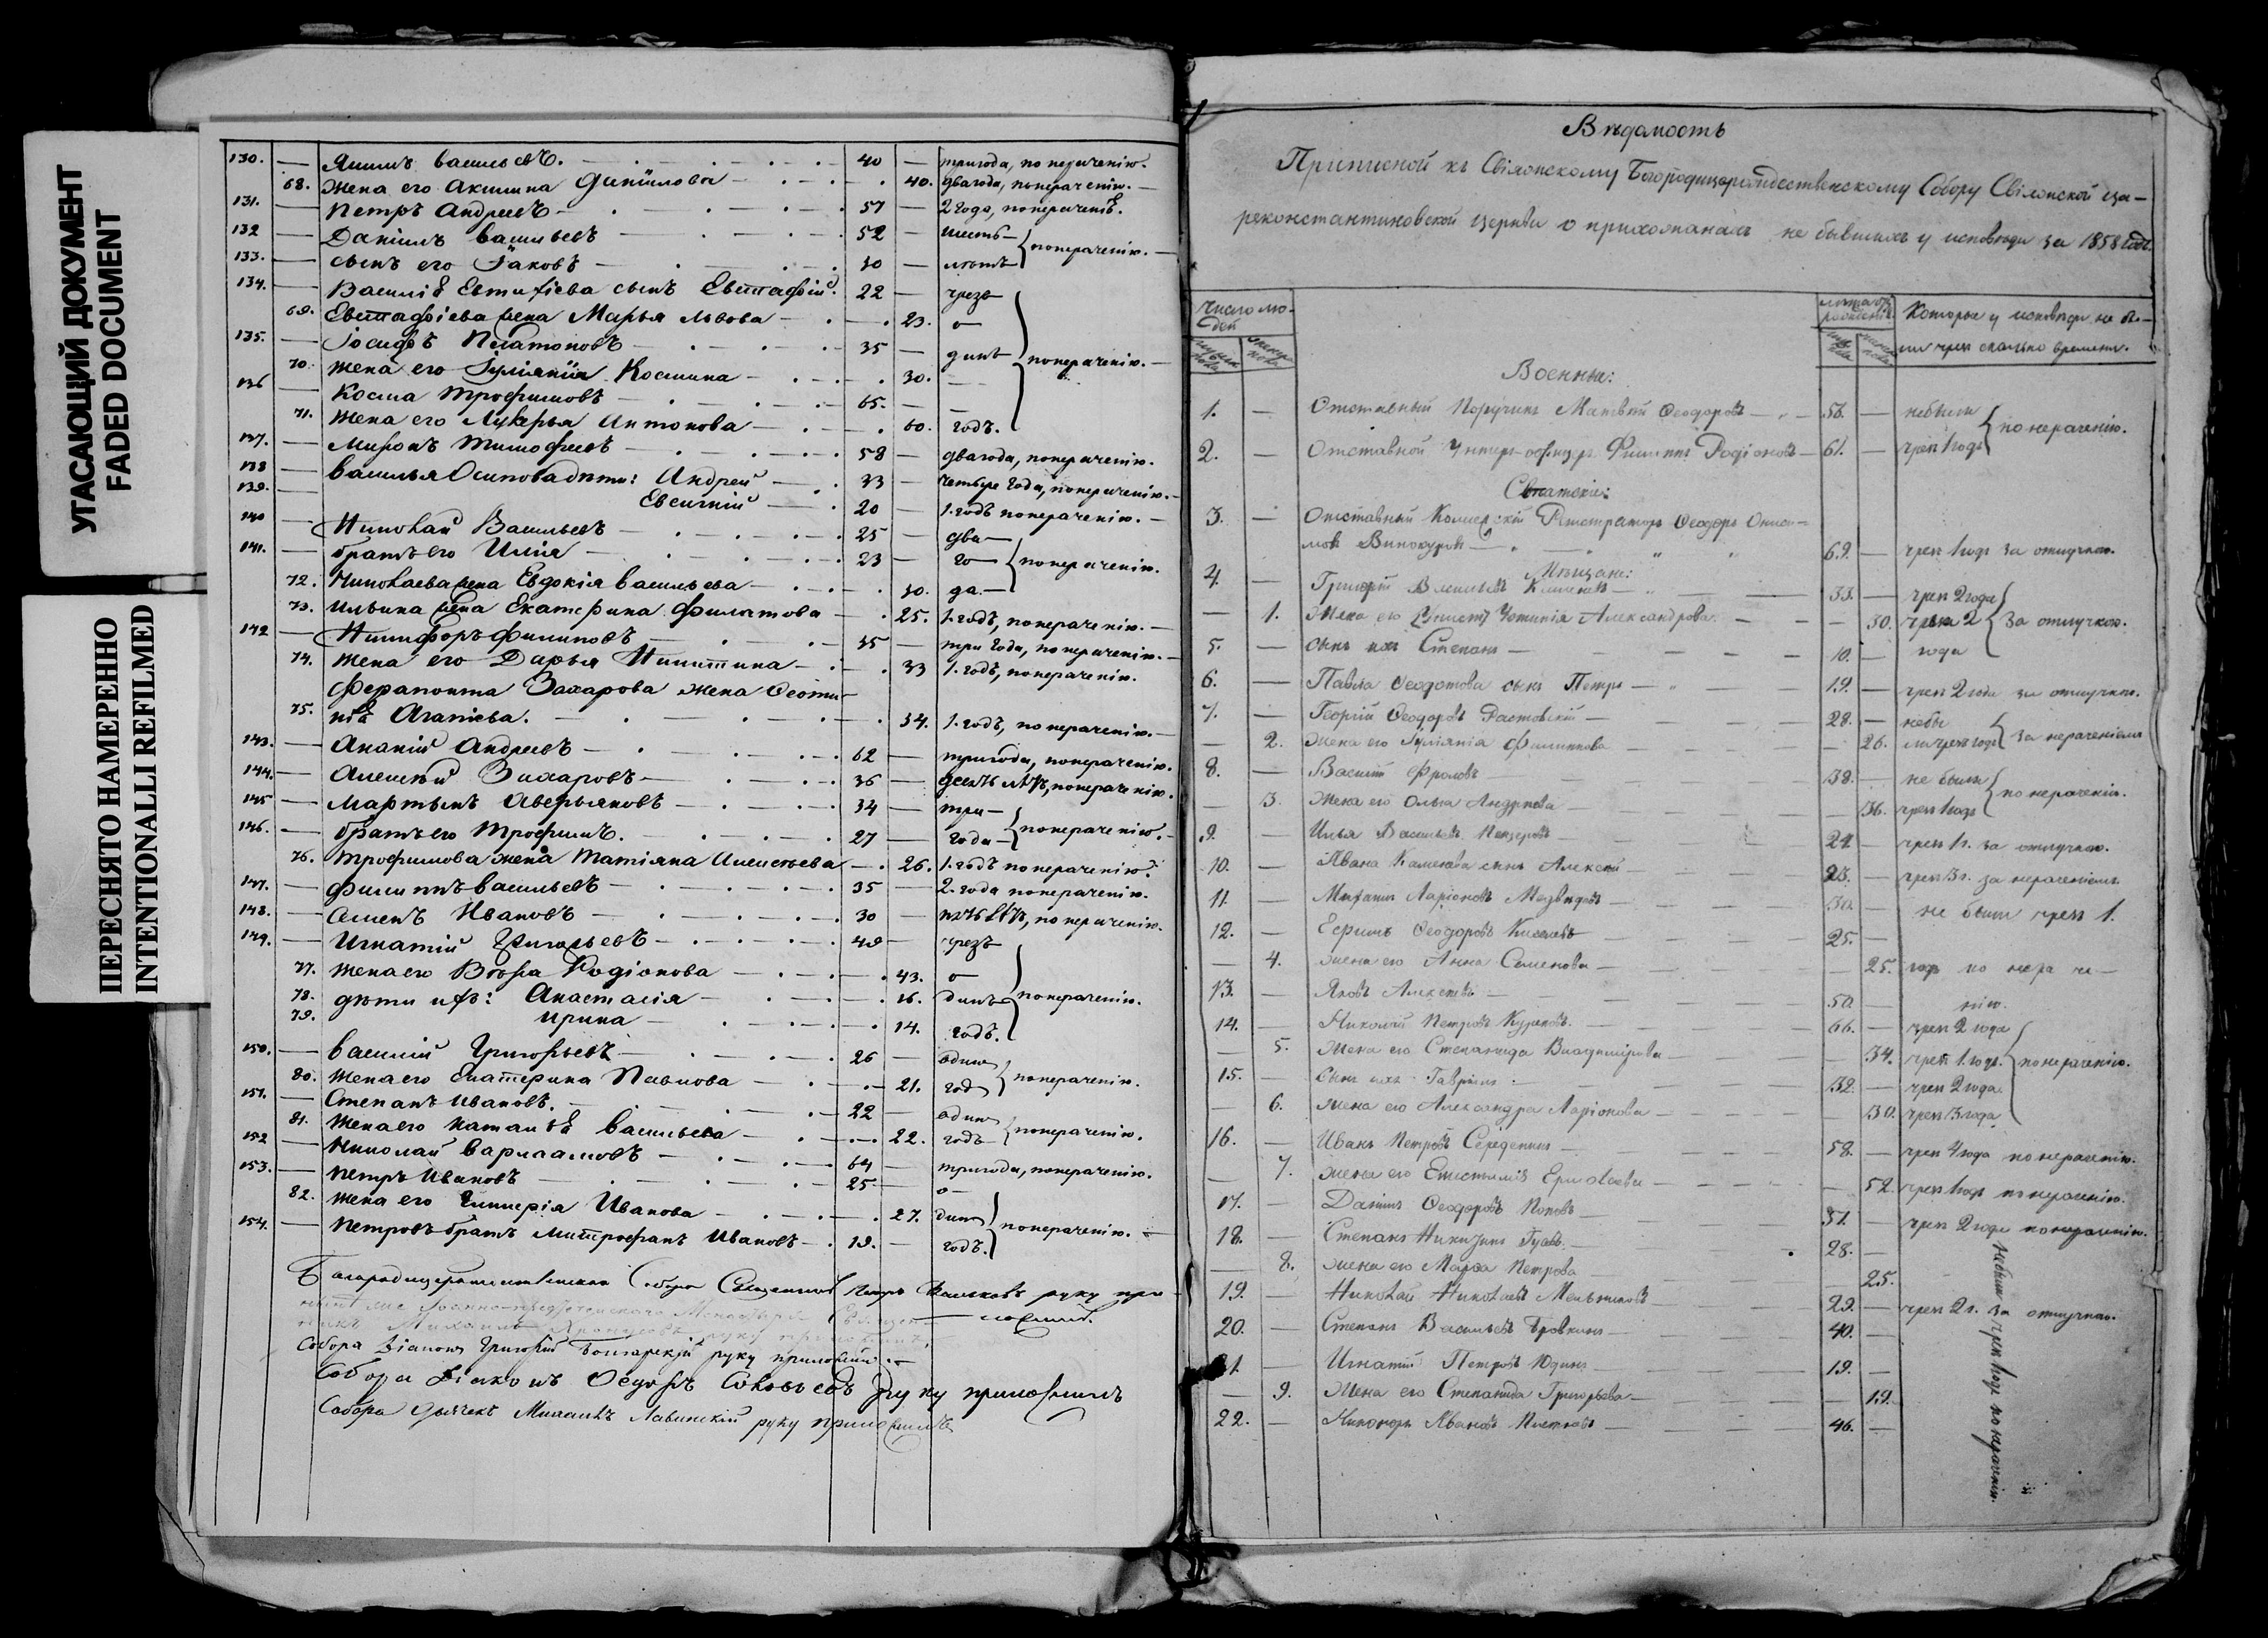 УГАСАЮЩИЙ ДОКУМЕНТ
FADED DOCUMENT
ПЕРЕСНЯТО НАМЕРЕННО
INTENTIONALLI REFILMED
130. — Якимъ Васильевъ. — 40 — тригода, понераченію.
68. жена его Акилина Данилова — 40. двагода, понераченію. —
131. — Петръ Андреевъ — 57 — 2 года, понераченію.
132 — Даніилъ Васильевъ — 52 — шесть — понераченію. —
133. — сынъ его Іаковъ — 30 — лѣтъ
134. — Василія Евтихіева сынъ Евстафій. 22 — чрезъ
69. Евстафіева жена Марья Львова — 23. о—
135. — Іосифъ Платоновъ — 35 — динъ понераченію. —
70. жена его Іуліанія Космина — 30. —
136 — Косма Трофимовъ — 65. —
71. жена его Лукерья Антонова — 60. годъ.
137. — Миронъ Тимофеевъ — 58 — двагода, понераченію.
138 — Василья Осипова дѣти: Андрей — 33 — четыре года, понераченію. —
139. — Евсигній — 20 — 1. годъ понераченію. —
140 — Николай Васильевъ — 25 — два —
141. — братъ его Илія — 23 — го — понераченію.
72. Николаева жена Евдокія Васильева — 30. да —
73. Ильина жена Екатерина Филатова — 25. 1. годъ, понераченію. —
142 — Никифоръ Филиповъ — 35 — три года, понераченію. —
74. жена его Дарья Никитина — 33 1. годъ, понераченію.
Ферапонта Захарова жена Феоти-
75. Агапіева. — 34. 1. годъ, понераченію. —
143. — Ананій Андреевъ — 62 — тригода, понераченію.
144. — Алексѣй Захаровъ — 36 — десять лѣтъ, понераченію.
145 — Мартынъ Аверьяновъ — 34 — три —
146. — братъ его Трофимъ. — 27 — года — понераченію. —
76. Трофимова жена Татіяна — 26. 1. годъ понераченію.
147. — Филиппъ Васильевъ — 35 — 2. года понераченію.
148. — Семенъ Ивановъ — 30 — пять лѣтъ, понераченію.
149. — Игнатій Григорьевъ — 49 — чрезъ
77. жена его Родіонова — 43. о—
78. дѣти ихъ: Анастасія — 16. динъ понераченію.
79. Ирина — 14. годъ.
150. — Василій Григорьевъ — 26 — одинъ
80. жена его Екатерина Павлова — 21. годъ понераченію.
151. — Степанъ Ивановъ. — 22 — одинъ
81. жена его Наталія Васильева — 22. годъ — понераченію.
152 — Николай Варлаамовъ — 64 — тригода, понераченію.
153. — Петръ Ивановъ — 25 — о—
82. жена его Гликерія Иванова — 27. динъ понераченію. —
154. — Петровъ братъ Митрофанъ Ивановъ — 19. — годъ.
Богородицерождественскаго Собора Священникъ Петръ руку при-
ложилъ.
Михаилъ руку приложилъ
Собора Діаконъ Григорій Болгарскій руку приложилъ. —
Собора Діаконъ Ѳедоръ Соловьевъ руку приложилъ
Собора дьячекъ Михаилъ Лавинскій руку приложилъ
Вѣдомость
Приписной къ Свіяжскому Богородицерождественскому Собору Свіяжской ца-
реконстантиновской церкви о прихожанахъ не бывшихъ у исповѣди за 1858 годъ.
Число лю-
дей
лѣта отъ
рожденія
Которые у исповѣди не бы-
ли чрезъ сколько времени.
Военные:
1. — Отставный Поручикъ Матвѣй Ѳеодоровъ — 56. — небыли
2. — Отставной Унтеръ-офицеръ Филиппъ Родіоновъ — 61. — чрез 1 годъ понераченію.
Статскіе:
3. — Отставный Коллежскій Регистраторъ Ѳеодоръ Онис-
Винокуровъ — 69. — чрез 1 годъ за отлучкою.
Мѣщане:
4. — Григорій Васильевъ — 33. — чрез 2 года
— 1. Жена его Александрова — 30. чрезъ 2 за отлучкою.
5. — сынъ ихъ Степанъ — 10. — года
6. — Павла Ѳеодотова сынъ Петръ — 19. — чрез 2 года за отлучкою.
7. — Георгій Ѳеодоровъ Растовскій — 28. — небы
— 2. Жена его Іуліанія Филиппова — 26. ли чрез годъ за нераченіемъ
8. — Василій Фроловъ — 38. — не были
— 3. Жена его Ольга Андреева — 36. чрез 1 годъ понераченію.
9. — Илья Васильевъ — 24 — чрез 1 г. за отлучкою.
10. — Ивана сынъ Алексѣй — 23. — чрез 3 г. за нераченіемъ.
11. — Михаилъ Ларіоновъ Медвѣдевъ — 30. — не были чрезъ 1.
12. — Ефимъ Ѳеодоровъ Киселевъ — 25. —
— 4. жена его Анна Семенова — 25. годъ по нера че —
13. — Яковъ Алексѣевъ — 50. — нію.
14. — Николай Петровъ — 66. — чрез 2 года
— 5. Жена его Степанида Владимірова — 34. чрез 1. годъ. понераченію.
15. — Сынъ ихъ Гавріилъ: — 32. — чрез 2 года.
— 6. жена его Александра Ларіонова — 30. чрез 3 года
16. — Иванъ Петровъ — 58. — чрез 4 года понераченію.
— 7. жена его Ермолаева — 52. чрез 1 годъ понераченію.
17. — Даніилъ Ѳеодоровъ Поповъ — 51. — чрез 2 года понераченію.
18. — Степанъ — 28. —
— 8. жена его Марѳа Петрова — 25.
19. — Николай Николаевъ Мельниковъ — 29. — чрез 2 г. за отлучкою.
20. — Степанъ Васильевъ Бровкинъ — 40. —
21. — Игнатій Петровъ Юдинъ — 19. —
— 9. Жена его Степанида Григорьева — 19.
22. — Никоноръ Ивановъ — 46. —
небыли чрез 1 годъ по нераченію.